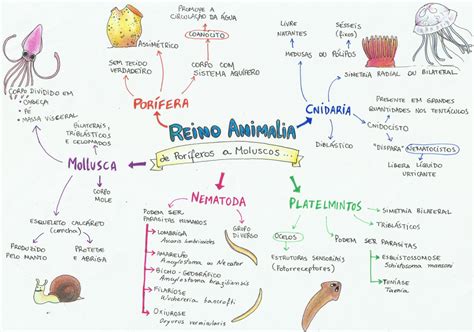 REINO ANIMALIA
de Poríferos a Moluscos...
PORÍFERA
ASSIMÉTRICO
SEM TECIDO
VERDADEIRO
PROMOVE A
CIRCULAÇÃO DA ÁGUA
COANÓCITO
CORPO COM
SISTEMA AQUÍFERO
CNIDARIA
LIVRE
NATANTES
SÉSSEIS
(fixos)
MEDUSAS OU PÓLIPOS
SIMETRIA RADIAL OU BILATERAL
PRESENTE EM GRANDES
QUANTIDADES NOS TENTÁCULOS
CNIDÓCISTO
"DISPARA" NEMATOCISTOS
LIBERA LÍQUIDO
URTICANTE
DIBLÁSTICO
PLATELMINTOS
SIMETRIA BILATERAL
TRIBLÁSTICOS
PODEM SER PARASITAS
ESQUISTOSSOMOSE
Schistosoma mansoni
TENÍASE
Taenia
OCELOS
ESTRUTURAS SENSORIAIS
(Fotorreceptores)
NEMATODA
GRUPO
DIVERSO
PODEM SER
PARASITAS HUMANOS
LOMBRIGA
Ascaris lumbricoides
AMARELÃO
Ancylostoma ou Necator
BICHO-GEOGRÁFICO
Ancylostoma braziliensis
FILARIOSE
Wuchereria bancrofti
OXIUROSE
Oxyurus vermicularis
MOLLUSCA
CORPO DIVIDIDO EM
CABEÇA
PÉ
MASSA VISCERAL
BILATERAIS,
TRIBLÁSTICOS
E CELOMADOS
CORPO
MOLE
ESQUELETO CALCÁREO
(concha)
PRODUZIDO
PELO MANTO
PROTEGE
E ABRIGA